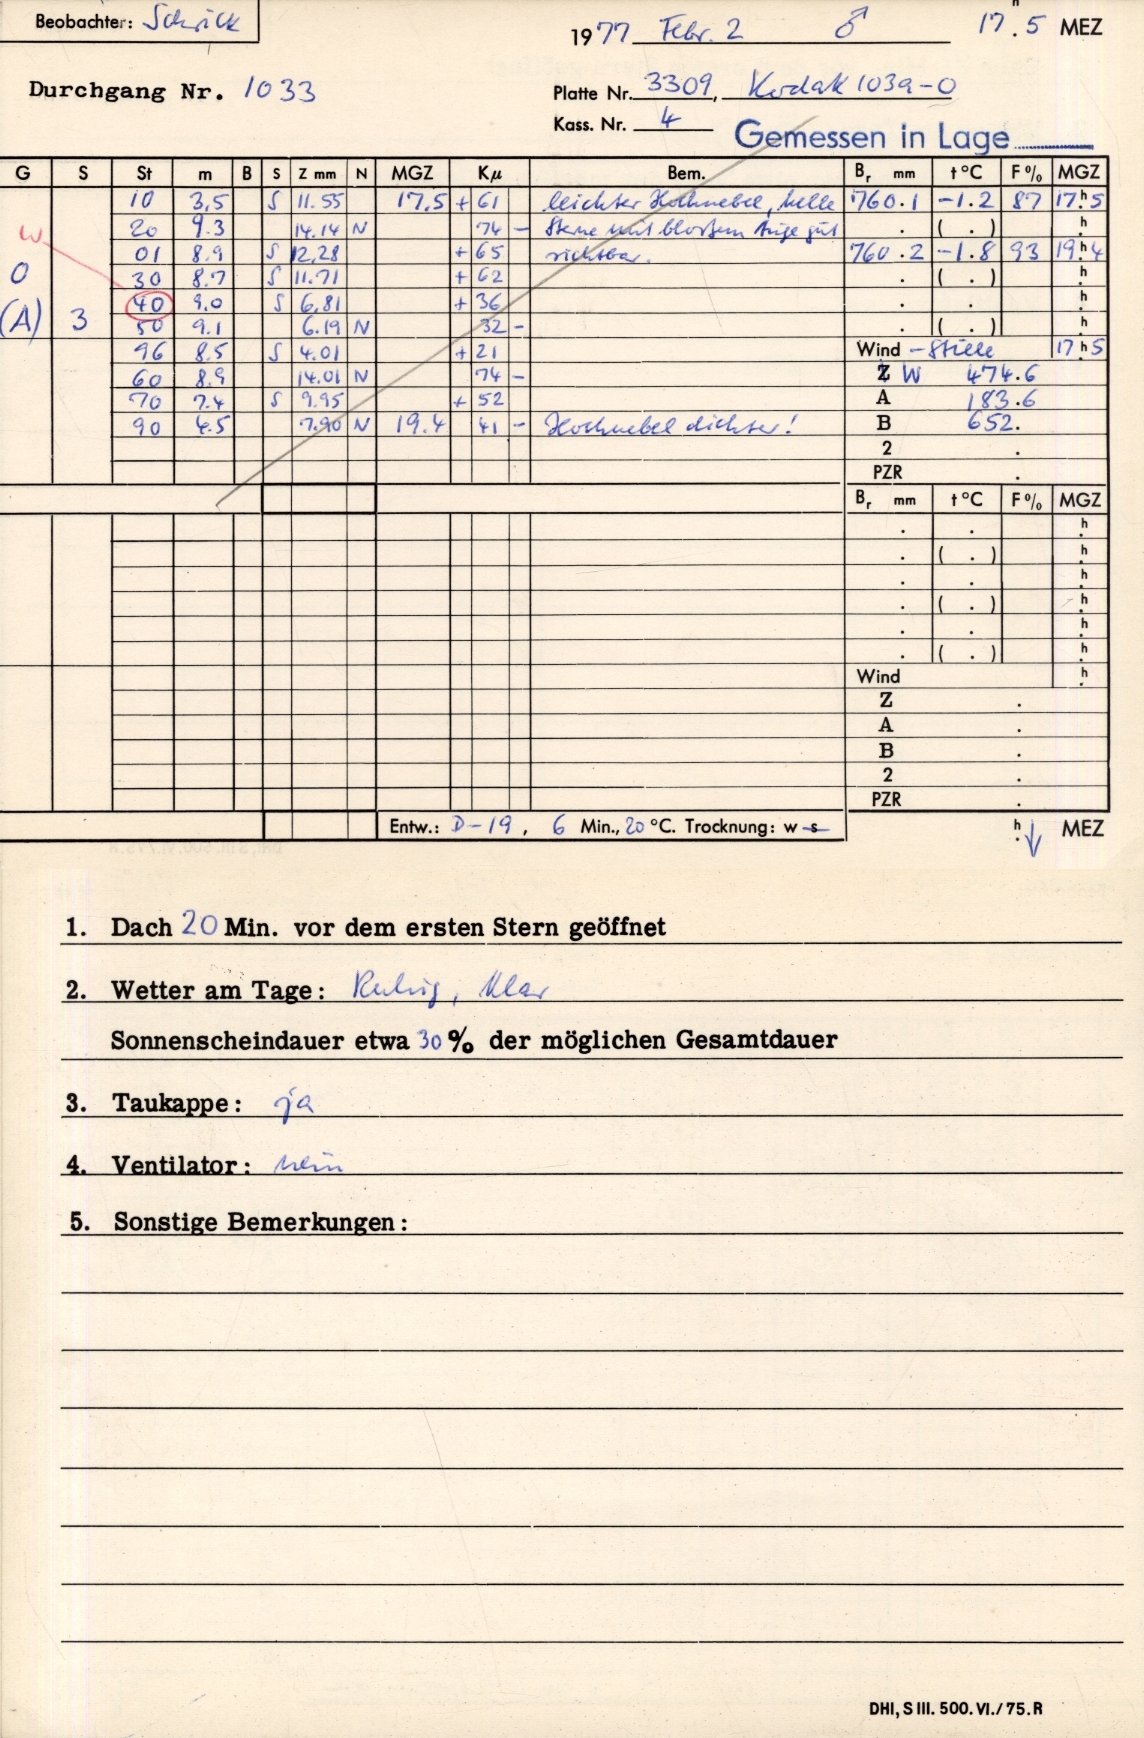 Beobachter: Schrick
1977 Febr. 2 ♂ 17h.5 MEZ
Durchgang Nr. 1033
Platte Nr. 3309, Kodak 103a-O
Kass. Nr. 4
Gemessen in Lage
G S St m B S Z mm N MGZ Kμ Bem. Br mm t °C F % MGZ
10 3.5 S 11.55 17.5 + 61 leichter Hochnebel, helle 760.1 -1.2 87 17h.5
w 20 9.3 14.14 N 74 - Sterne mit bloßem Auge gut . ( . ) h.
01 8.9 S 12.28 + 65 sichtbar. 760.2 -1.8 93 19h.4
0 30 8.7 S 11.71 + 62 . ( . ) h.
40 9.0 S 6.81 + 36 . . h.
(A) 3 50 9.1 6.19 N 32 - . ( . ) h.
96 8.5 S 4.01 + 21 Wind - Stille 17h5
60 8.9 14.01 N 74 - Z W 474.6
70 7.4 S 9.95 + 52 A 183.6
90 4.5 7.90 N 19.4 41 - Hochnebel dichter! B 652.
2 .
PZR .
Br mm t °C F % MGZ
. . h.
. ( . ) h.
. . h.
. ( . ) h.
. . h.
. ( . ) h.
Wind h.
Z .
A .
B .
2 .
PZR .
Entw.: D-19, 6 Min., 20 °C. Trocknung: w s h. MEZ
1. Dach 20 Min. vor dem ersten Stern geöffnet
2. Wetter am Tage: Ruhig, klar
Sonnenscheindauer etwa 30 % der möglichen Gesamtdauer
3. Taukappe: ja
4. Ventilator: nein
5. Sonstige Bemerkungen:
DHI, S III. 500. VI./75. R